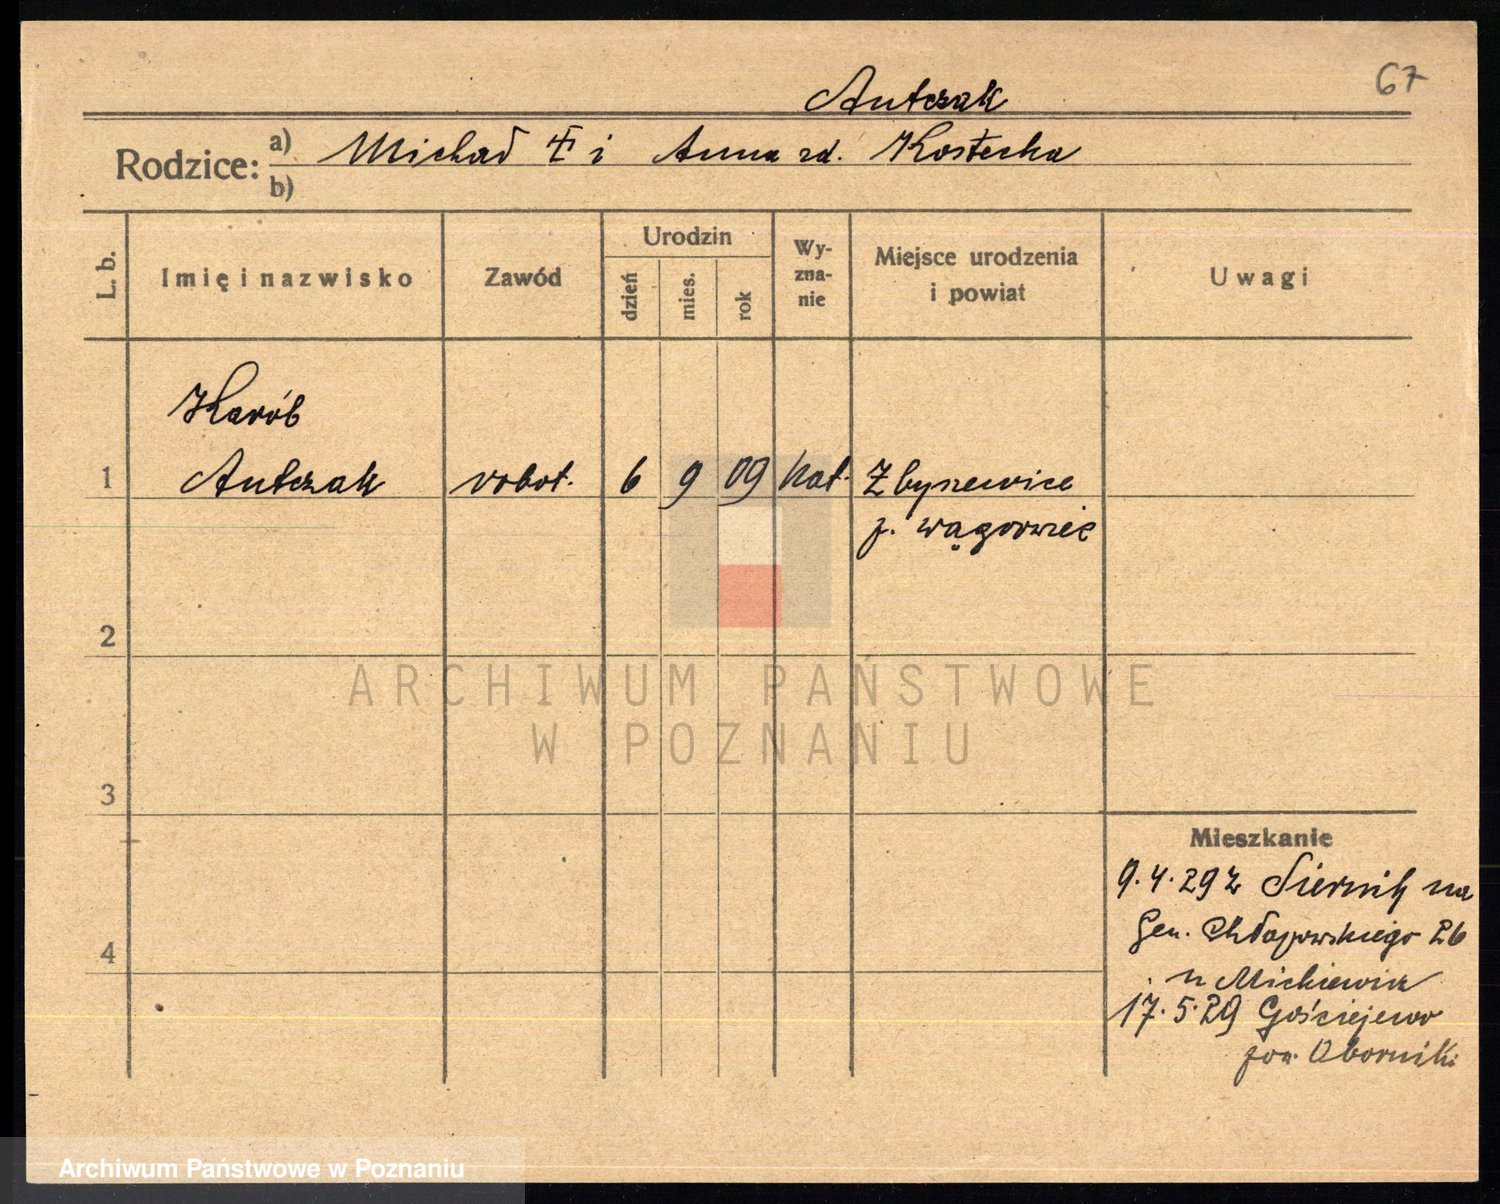 67
Antczak
Rodzice: a) Michał i Anna zd. Kostecka
b)
L. b. Imię i nazwisko Zawód Urodzin dzień mies. rok Wyznanie Miejsce urodzenia i powiat Uwagi
Karób
1 Antczak robot. 6 9 09 kat. Zbyszewice
p. wągrowiec
2
3
4
Mieszkanie
9.4.29 z Siernik na
Gen. Chłapowskiego 26
u Mickiewicz
17.5.29 Gościejewo
pow. Oborniki
ARCHIWUM PAŃSTWOWE
W POZNANIU
Archiwum Państwowe w Poznaniu